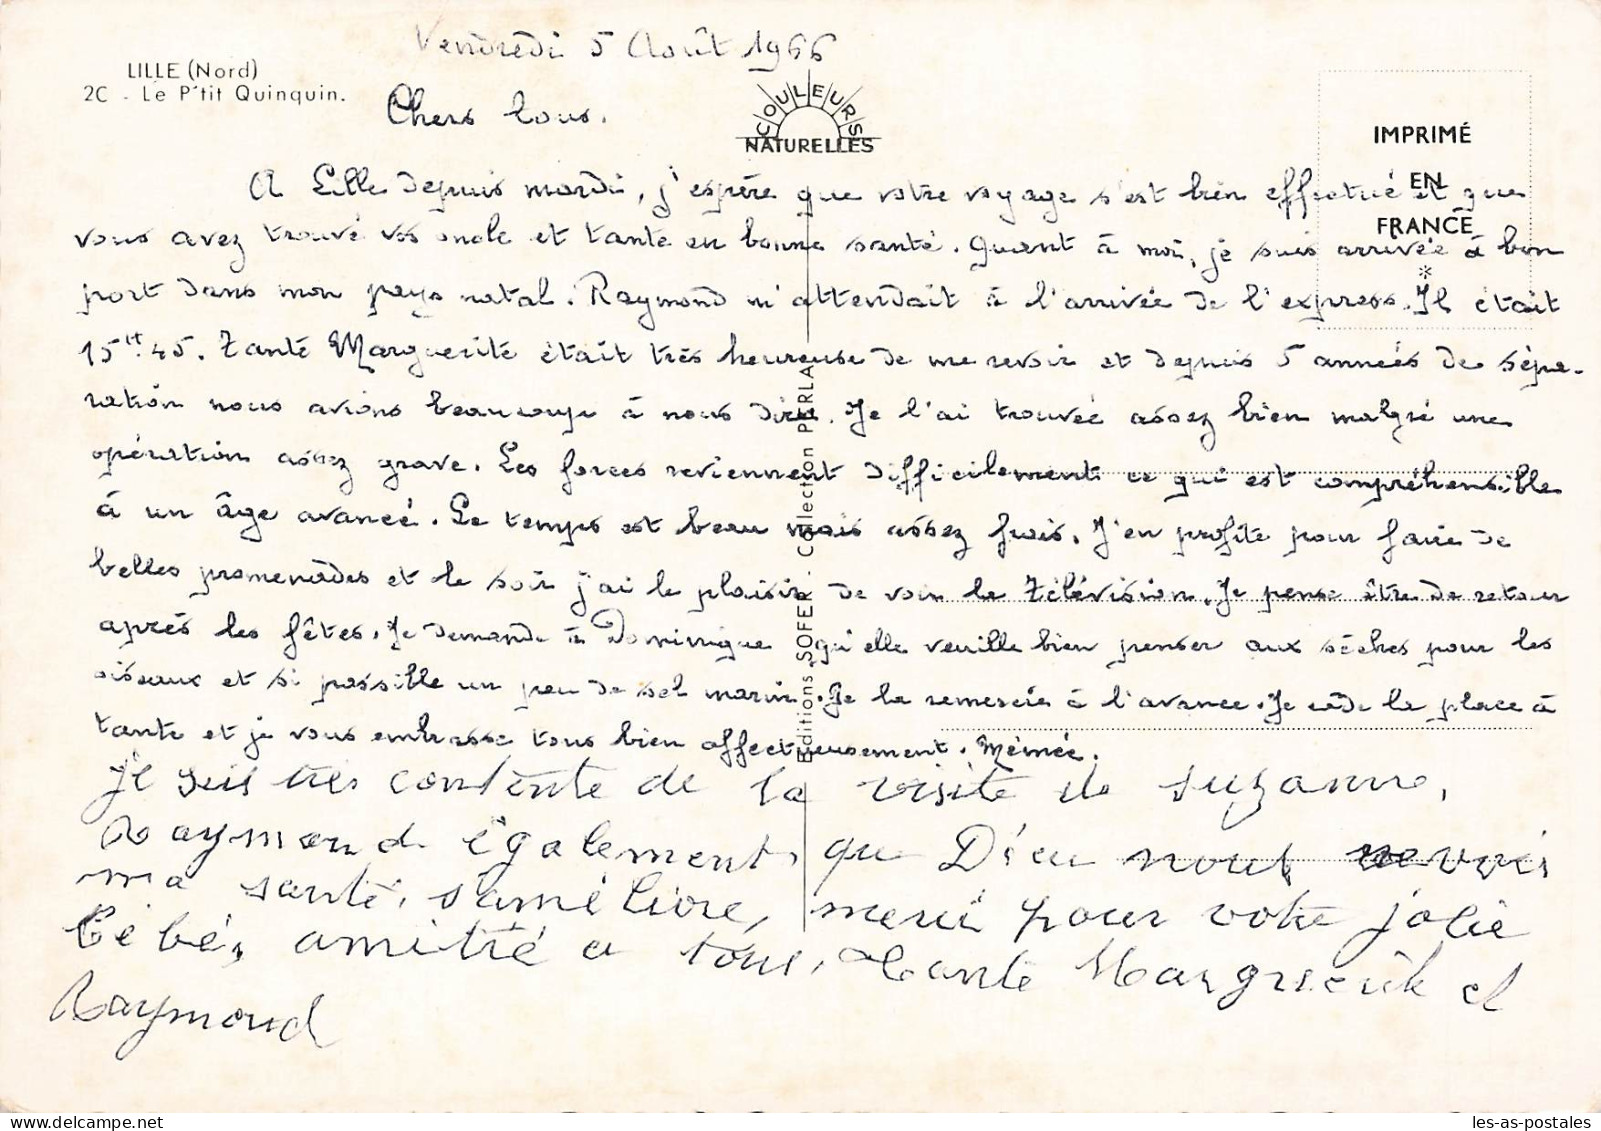 Vendredi 5 Août 1966
LILLE (Nord)
2C - Le P'tit Quinquin.
COULEURS
NATURELLES
IMPRIMÉ
EN
FRANCE
*
Chers tous.
A Lille depuis mardi, j'espère que votre voyage s'est bien effectué et que
vous avez trouvé vos oncle et tante en bonne santé. Quant à moi, je suis arrivée à bon
port dans mon pays natal. Raymond m'attendait à l'arrivée de l'express. Il était
15H45. Tante Marguerite était très heureuse de me revoir et depuis 5 années de sépa-
ration nous avions beaucoup à nous dire. Je l'ai trouvée assez bien malgré une
opération assez grave. Les forces reviennent difficilement ce qui est compréhensible
à un âge avancé. Le temps est beau mais assez frais. J'en profite pour faire de
belles promenades et le soir j'ai le plaisir de voir la Télévision. Je pense être de retour
après les fêtes. Je demande à Dominique qu'elle veuille bien penser aux sèches pour les
oiseaux et si possible un peu de sel marin. Je la remercie à l'avance. Je cède la place à
tante et je vous embrasse tous bien affectueusement. Mémée.
Editions SOFER - Collection PERLA
je suis très contente de la visite de suzanne,
Raymond également, que Dieu nous
ma santé, s'améliore, merci pour votre jolie
bébé, amitié a tous, Tante Marguerite et
Raymond
les-as-postales